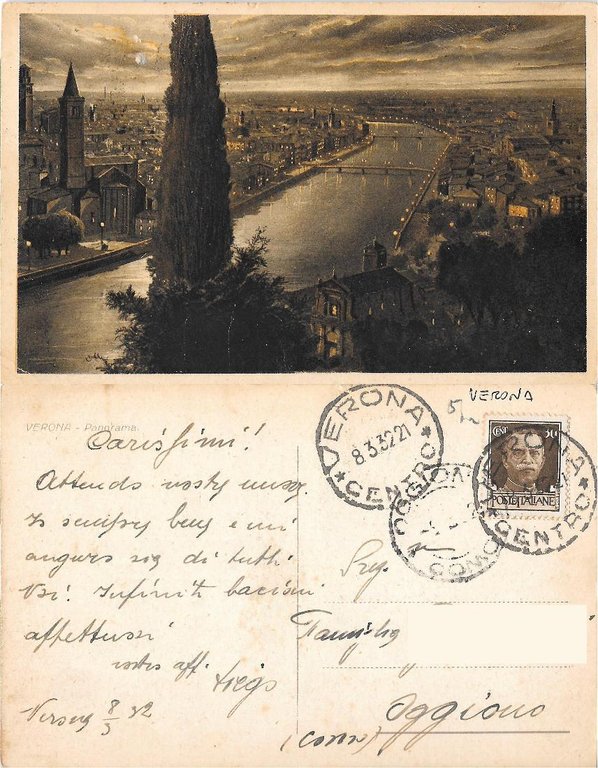 VERONA - Panorama.
Carissimi!
Attendo vostre nuove.
Io sempre bene e mi
auguro sia di tutti
Voi. Infiniti bacioni
affettuosi
vostro aff.
Verona 8/3 32
VERONA
VERONA
8.3.32.21
CENTRO
CENT 30
POSTE ITALIANE
VERONA
CENTRO
OGGIONO
COMO
Sig.
Famiglia
Oggiono
(Como)